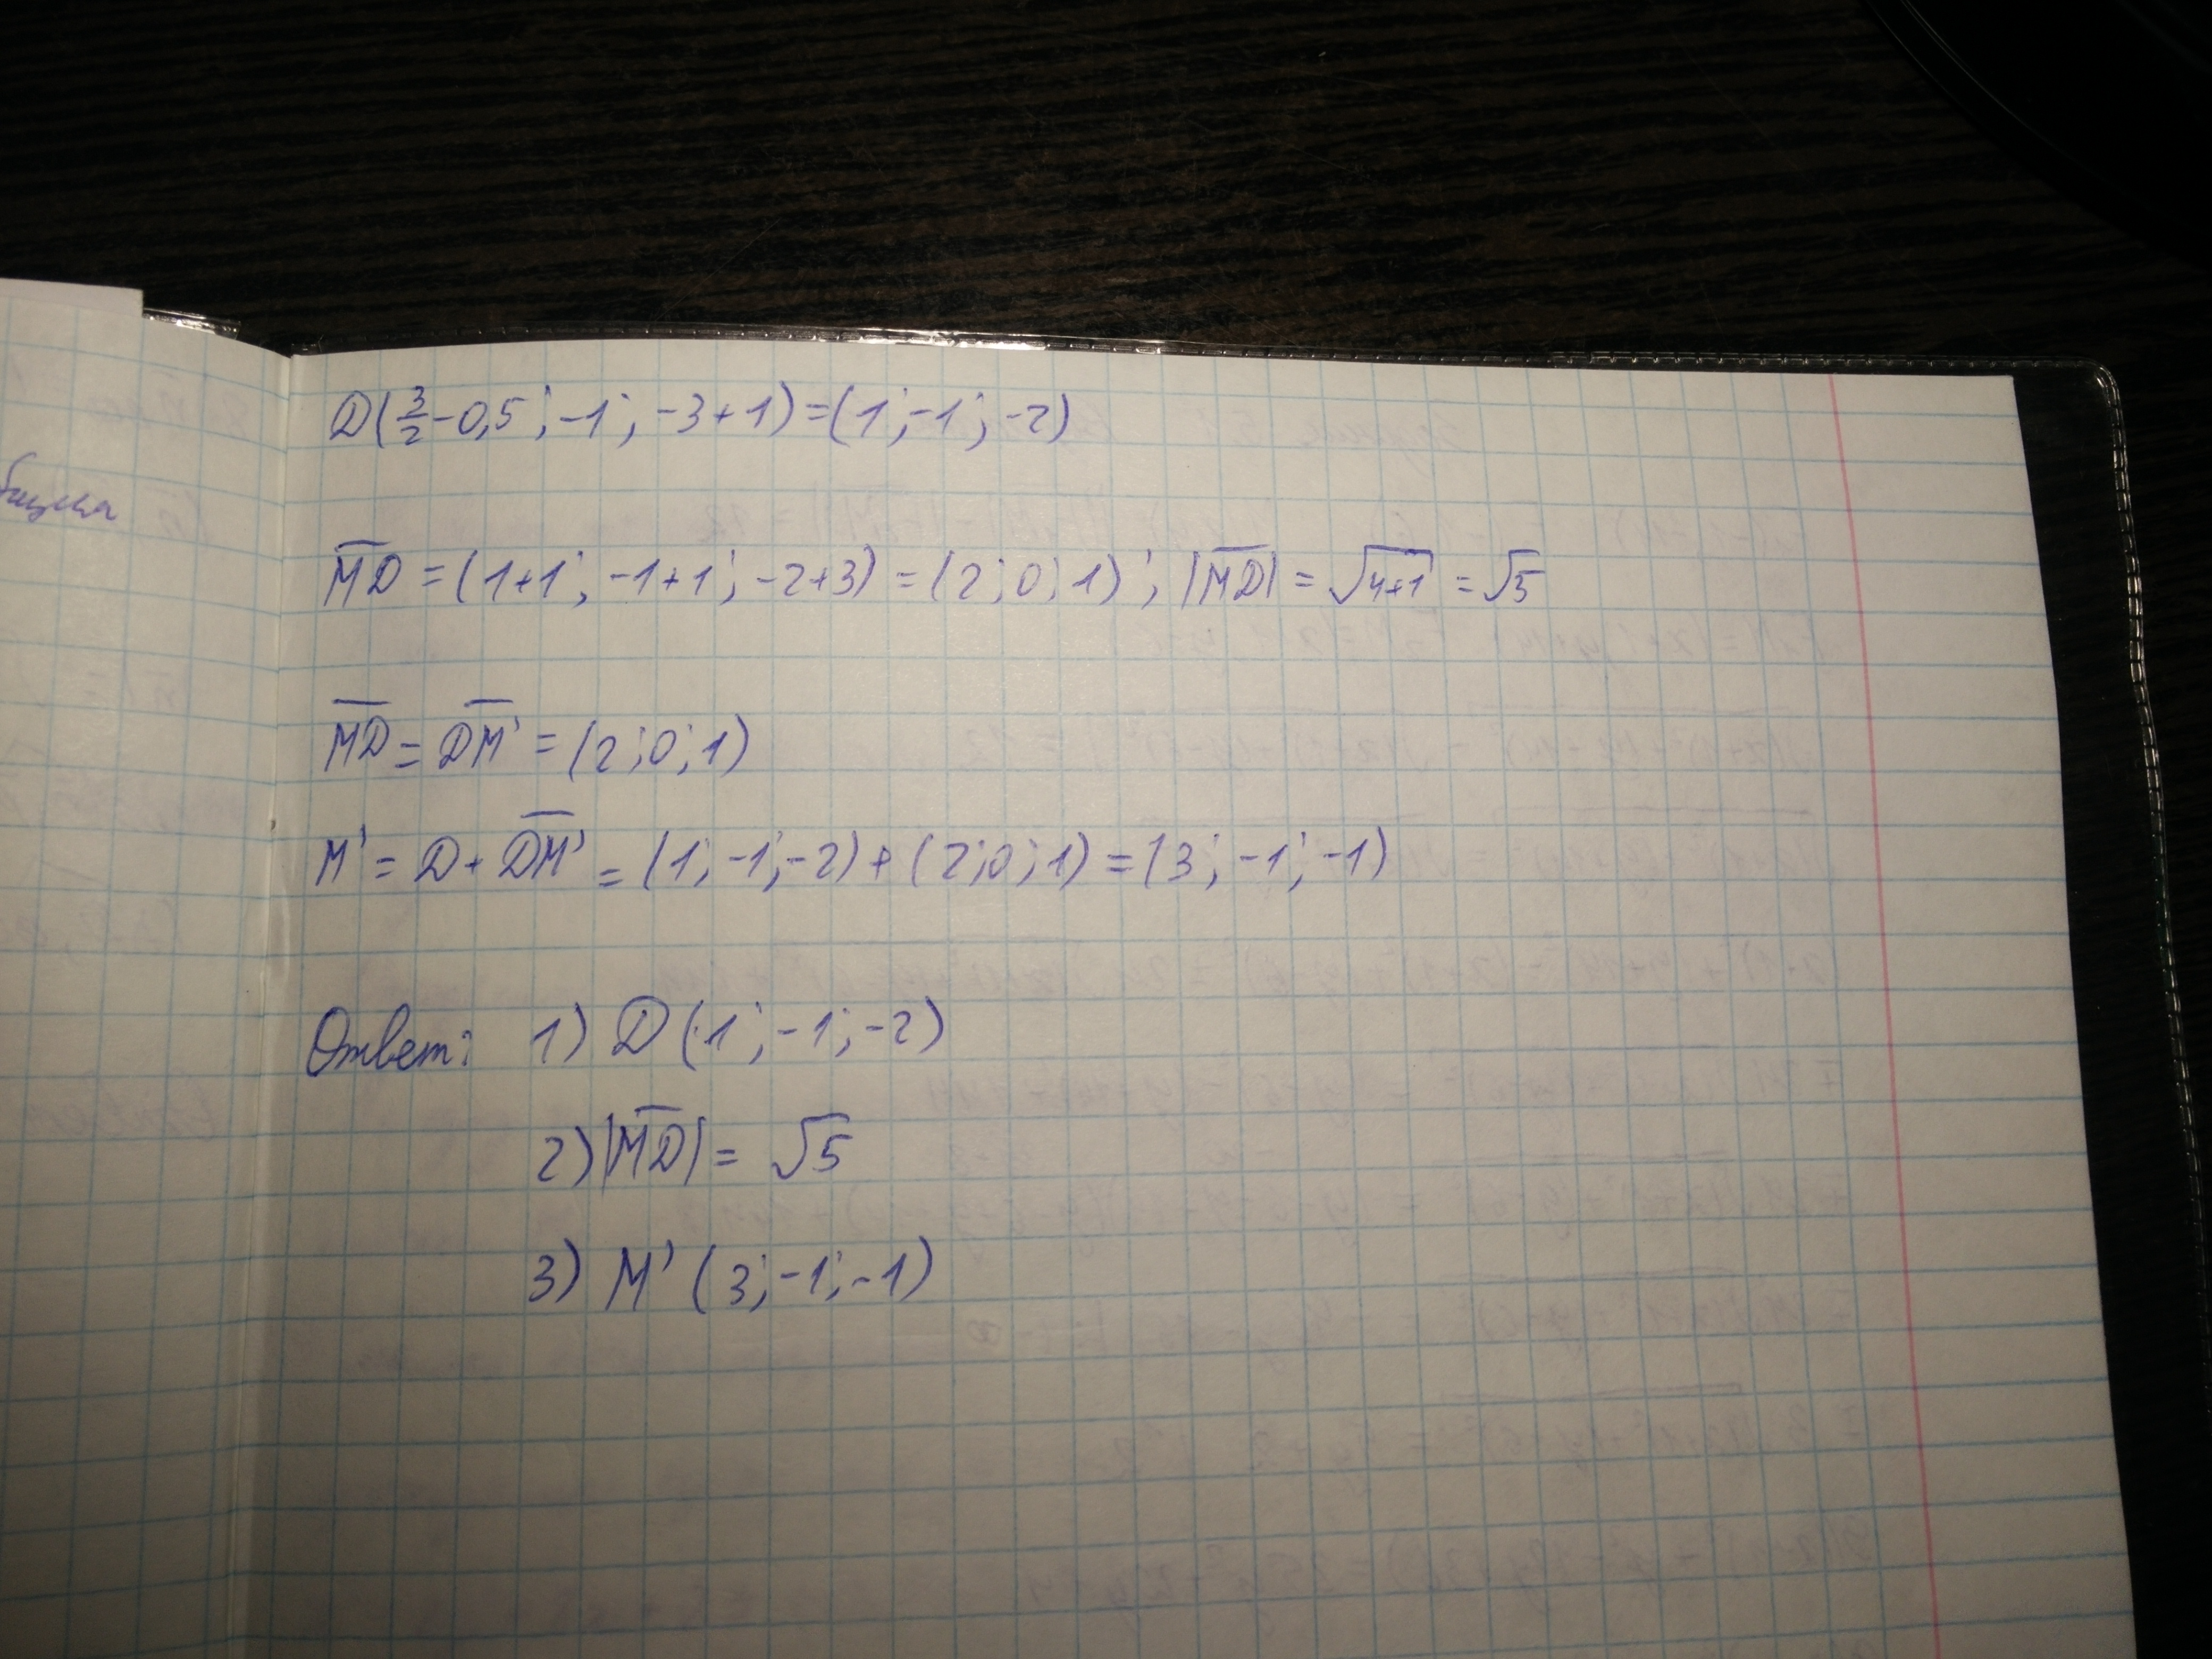 D(3/2-0,5; -1; -3+1)=(1; -1; -2)
M̅D̅ = (1+1; -1+1; -2+3) = (2; 0; 1); |M̅D̅| = √4+1 = √5
M̅D̅ = D̅M̅' = (2; 0; 1)
M' = D + D̅M̅' = (1; -1; -2) + (2; 0; 1) = (3; -1; -1)
Ответ: 1) D (1; -1; -2)
2) |M̅D̅| = √5
3) M' (3; -1; -1)